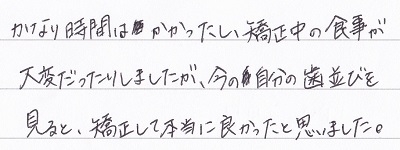 かなり時間はかかったし、矯正中の食事が
大変だったりしましたが、今の自分の歯並びを
見ると、矯正して本当に良かったと思いました。